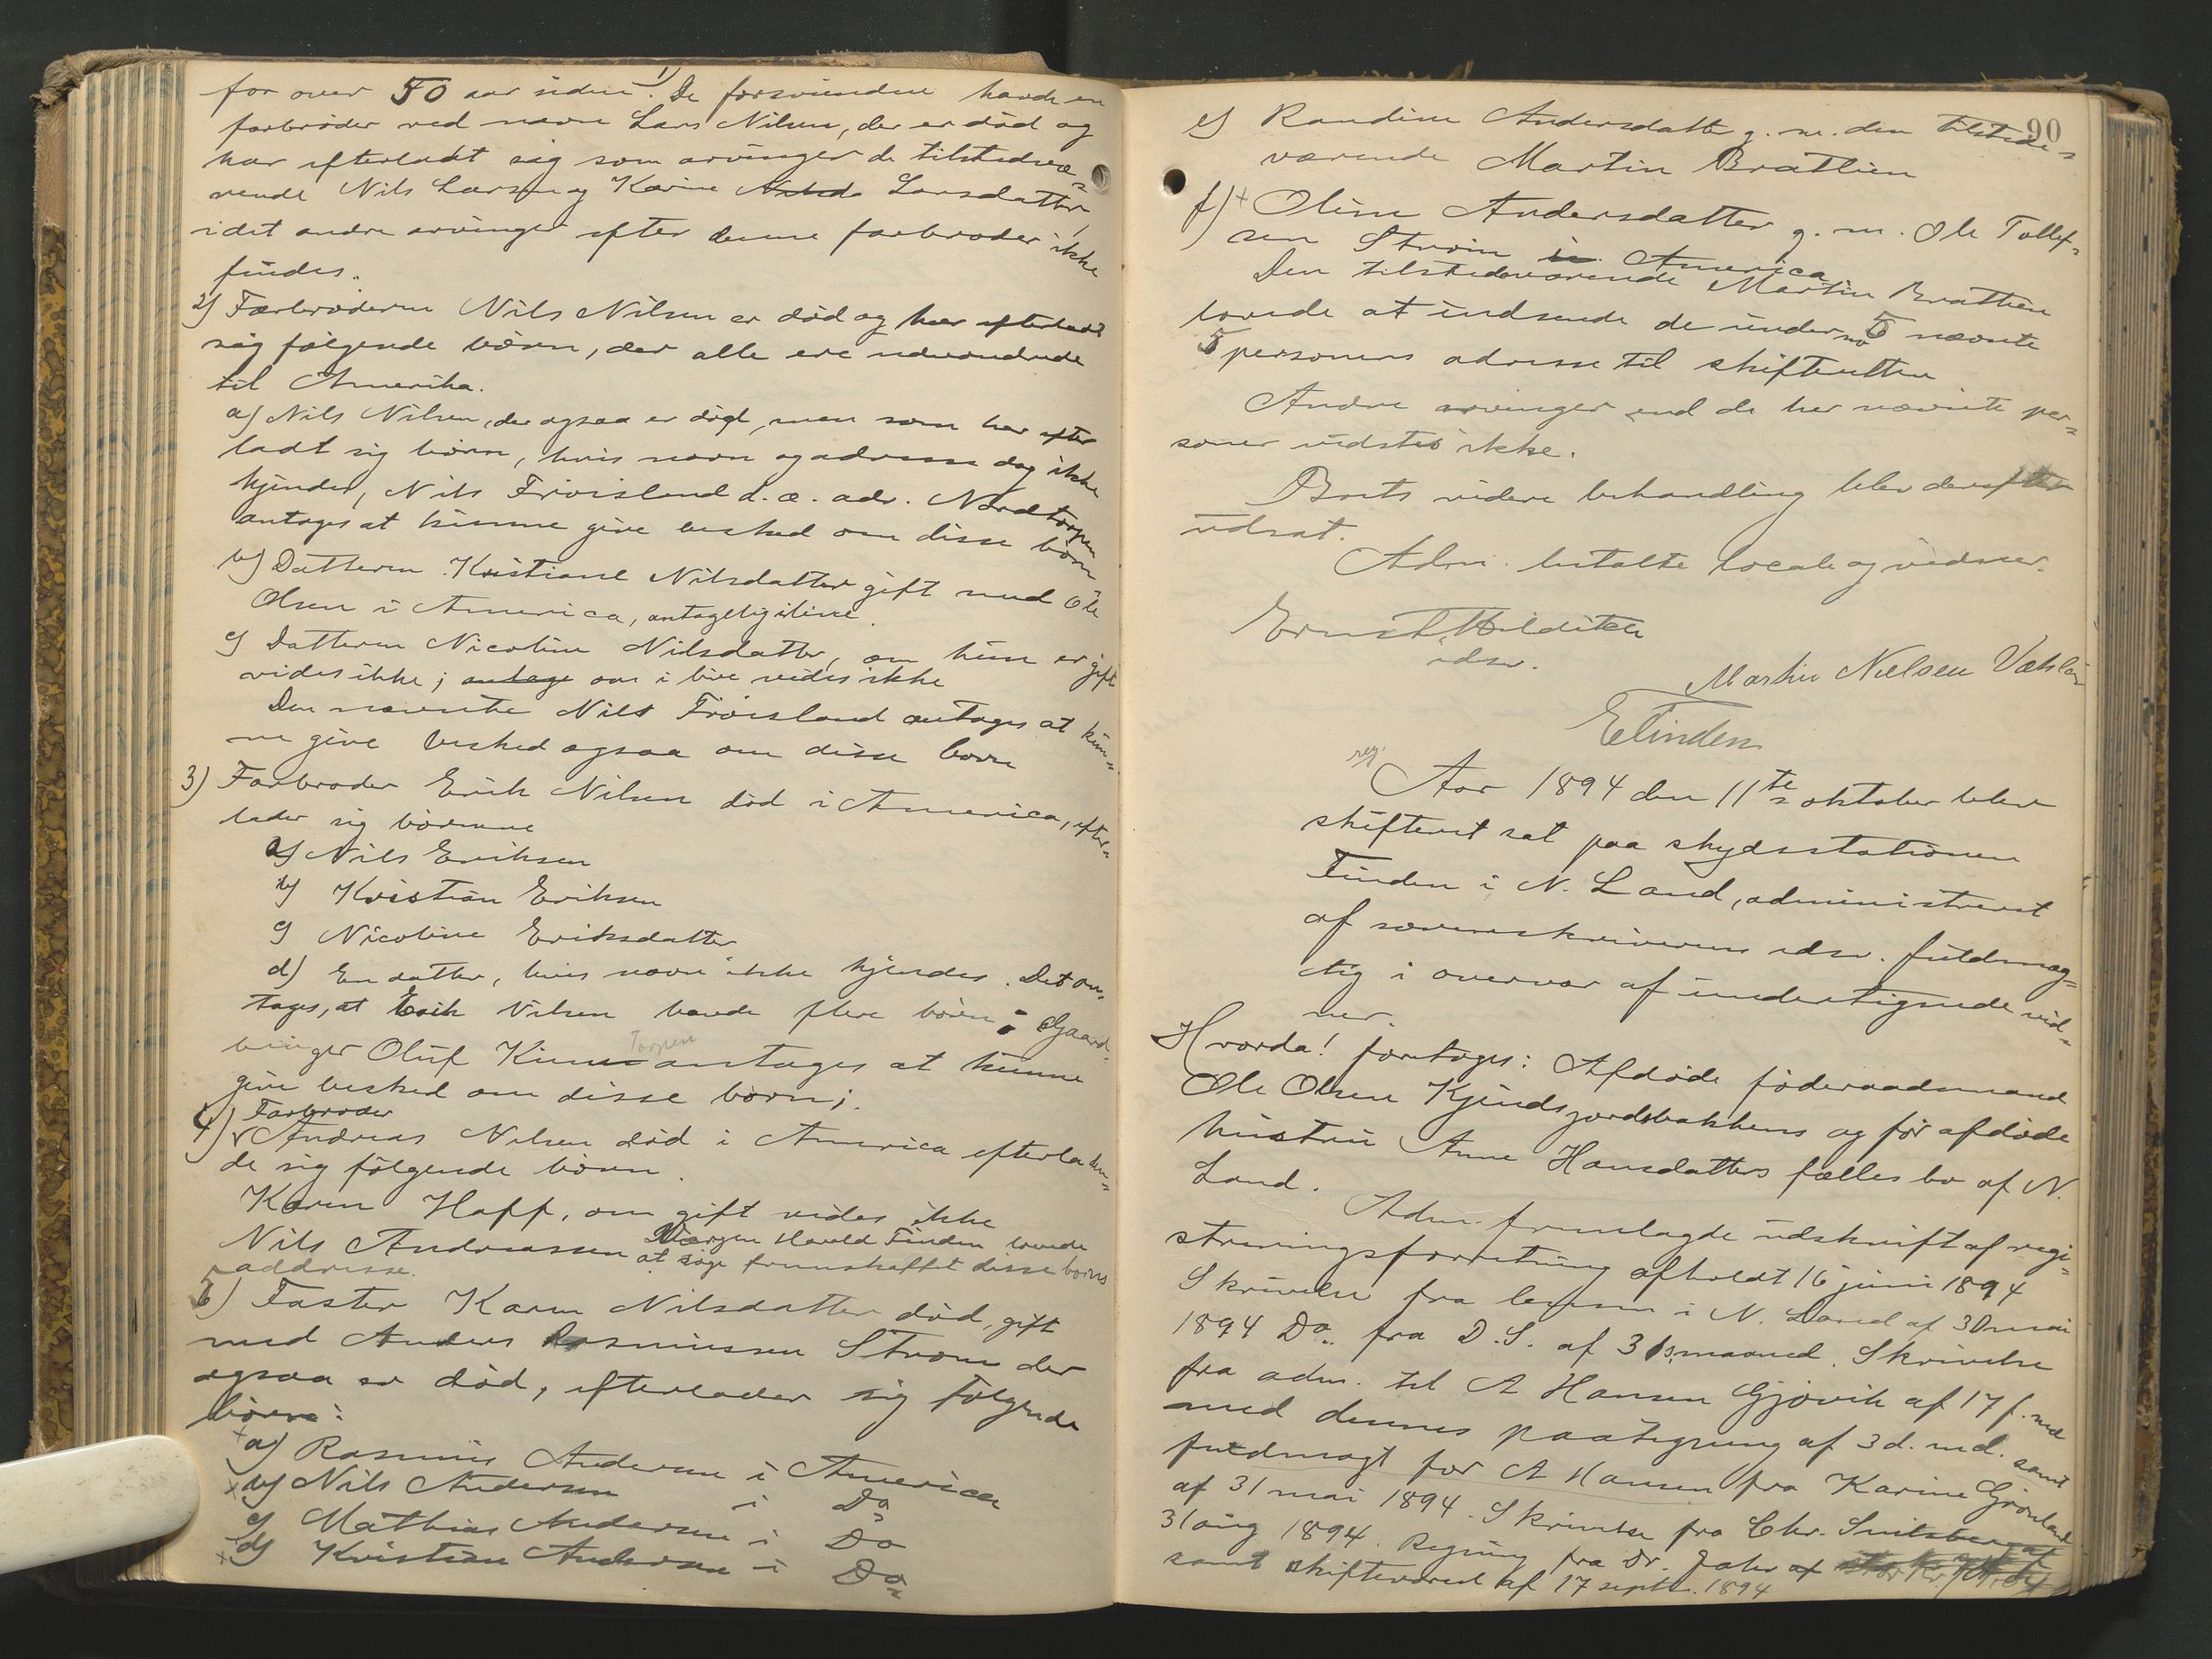 for over 50 aar siden. 1) De forsvundne havde en
farbröder ved navn Lars Nilsen, der er död og
har efterladt sig som arvinger de tilstedevæ=
rende Nils Larsen og Karine Larsdatter,
idet andre arvinger efter denne farbroder ikke
findes.
2) Farbroderen Nils Nilsen er död og har efterladt
sig fölgende börn, der alle ere udvandrede
til Amerika.
a) Nils Nilsen, der ogsaa er död, men som har efter
ladt sig börn, hvis navn og adresse dog ikke
kjendes, Nils Fröisland d. æ. adr. Nordtorpen
antages at kunne give besked om disse börn
b) Datteren Kristiane Nilsdatter gift med Ole
Olsen i America, antagelig ilive.
c) Datteren Nicoline Nilsdatter, om hun er gift
vides ikke; antage om i live vides ikke
Den nævnte Nils Fröisland antages at kun=
ne give besked ogsaa om disse börn
3) Farbroder Erik Nilsen död i America, efter=
lader sig börnene
a) Nils Eriksen
b) Kristian Eriksen
c) Nicoline Eriksdatter
d) En datter, hvis navn ikke kjendes. Det an=
tages, at Erik Nilsen havde flere börn; Gaard=
bruger Oluf Kinn Torpen antages at kunne
give besked om disse börn;.
4) Farbroder
Andreas Nilsen död i America efterladen=
de sig fölgende börn.
Karen Hoff, om gift vides ikke
Nils Andreassen Værgen Harald Finden lovede
at söge fremskaffet disse börns
addresse.
5) Faster Karen Nilsdatter död, gift
med Anders Rasmussen Strøm der
ogsaa er död, efterlader sig fölgende
börn:
+ a) Rasmus Andersen i America
x b) Nils Andersen i Do
c) Mathias Andersen i Do
x d) Kristian Andersen i Do
90
e) Randine Andersdatter g. m. den tilstede=
værende Martin Bratlien
f) + Oline Andersdatter g. m. Ole Tollef=
sen Strøm i America
Den tilstedeværende Martin Bratlien
lovede at indsende de under no 5 nævnte
5 personers adresse til skifteretten
Andre arvinger end de her nævnte per=
soner vidstes ikke.
Boets videre behandling blev derefter
udsat.
Adm. betalte locale og vidner.
Ernst Hilditch
edsv.
Martin Nielsen
E Finden
reg.
Aar 1894 den 11te oktober blev
skifteret sat paa skydsstationen
Finden i N. Land, administreret
af sorenskriverens edsv. fuldmæg=
tig i overvær af undertegnede vid=
ner.
Hvorda! foretoges: Afdöde föderaadsmand
Ole Olsen Kjindsjordsbakkens og för afdöde
hustru Anne Hansdatters fælles bo af N.
Land.
Adm. fremlagde udskrift af regi=
streringsforretning afholdt 16 juni 1894
Skrivelse fra lensm i N. Land af 30 mai
1894 Do fra D.S. af 31 s. maaned. Skrivelse
fra adm. til A Hansen Gjövik af 17 f. md
med dennes paategning af 3 d. md. samt
fuldmagt for A Hansen fra Karine Grönland
af 31 mai 1894. Skrivelse fra Chr. af
31 aug 1894. Regning fra Dr. af
samt skifteværd af 17 septr. 1894